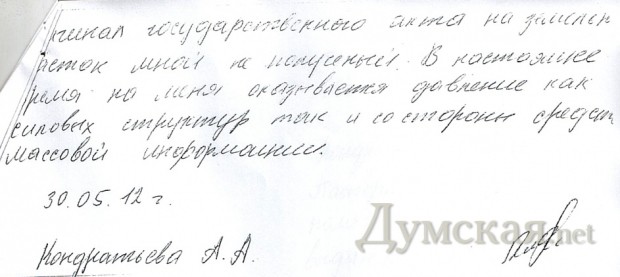 гинал государственного акта на земельн
асток мной не полученый. В настоящее
ремя на меня оказывается давление как
силовых структур так и со стороны средств
массовой информации.
30.05.12 г.
Думская.net
Кондратьева А.А.